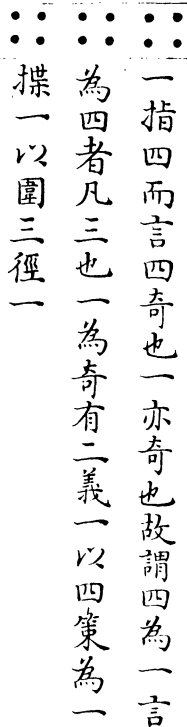 一指四而言四奇也一亦奇也故謂四為一言
為四者凡三也一為奇有二義一以四策為一
揲一以圍三徑一